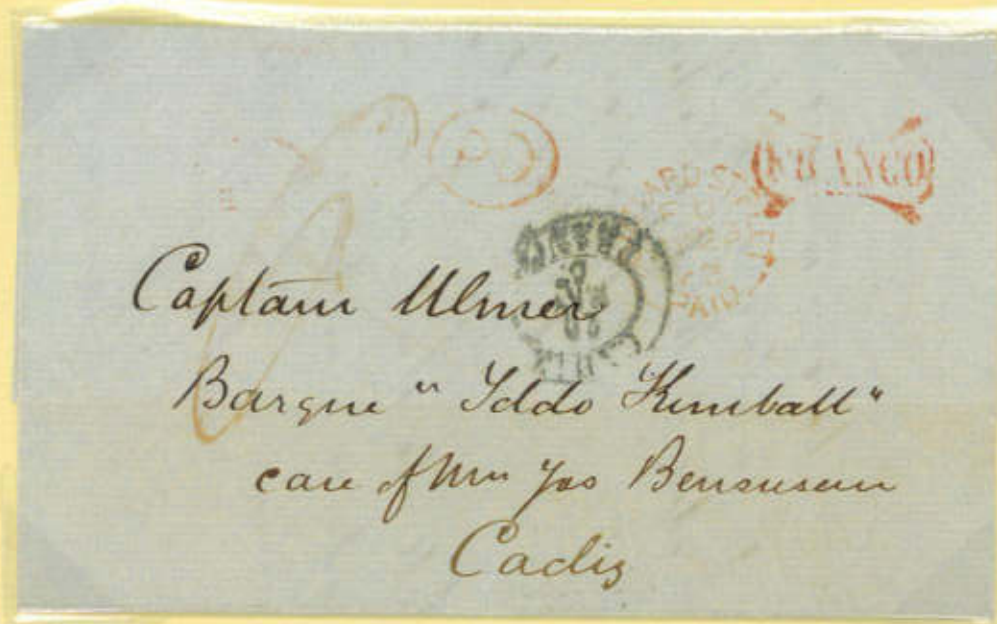 PD
FRANCO
PAID
Captain Ulmer
Barque "Iddo Kimball"
care of Mrs Jos Bensusan
Cadiz